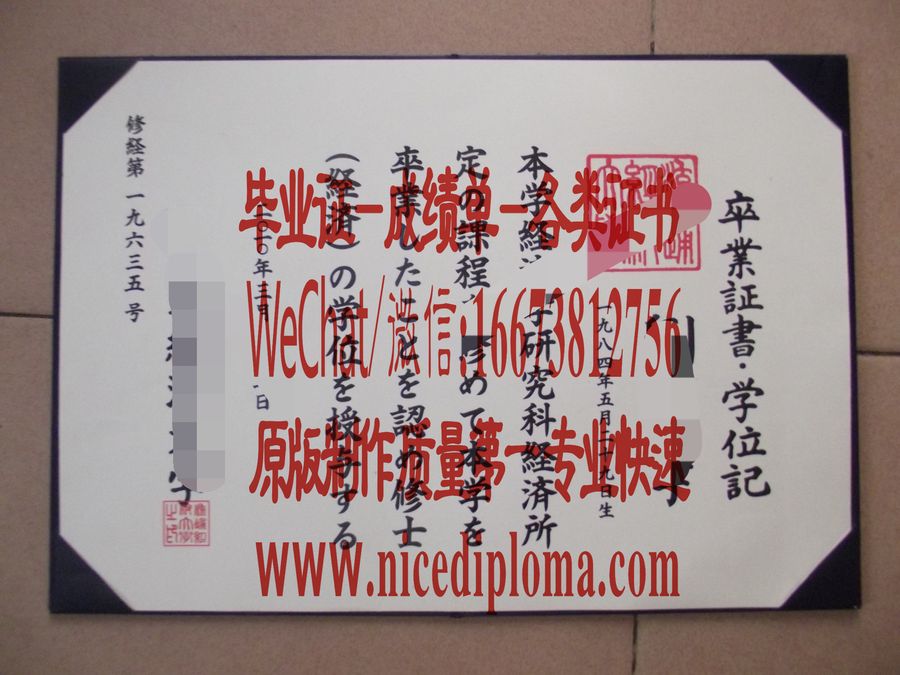 卒業証書・学位記
一九八四年五月二十九日生
本学経
学研究科経済所
定の課程
修めて本学を
卒業したことを認め修士
(経済)の学位を授与する
二〇一〇年三月
日
修経第一九六三五号
毕业证—成绩单—各类证书
WeChat/微信:16673812756
原版制作 质量第一 专业快速
www.nicediploma.com